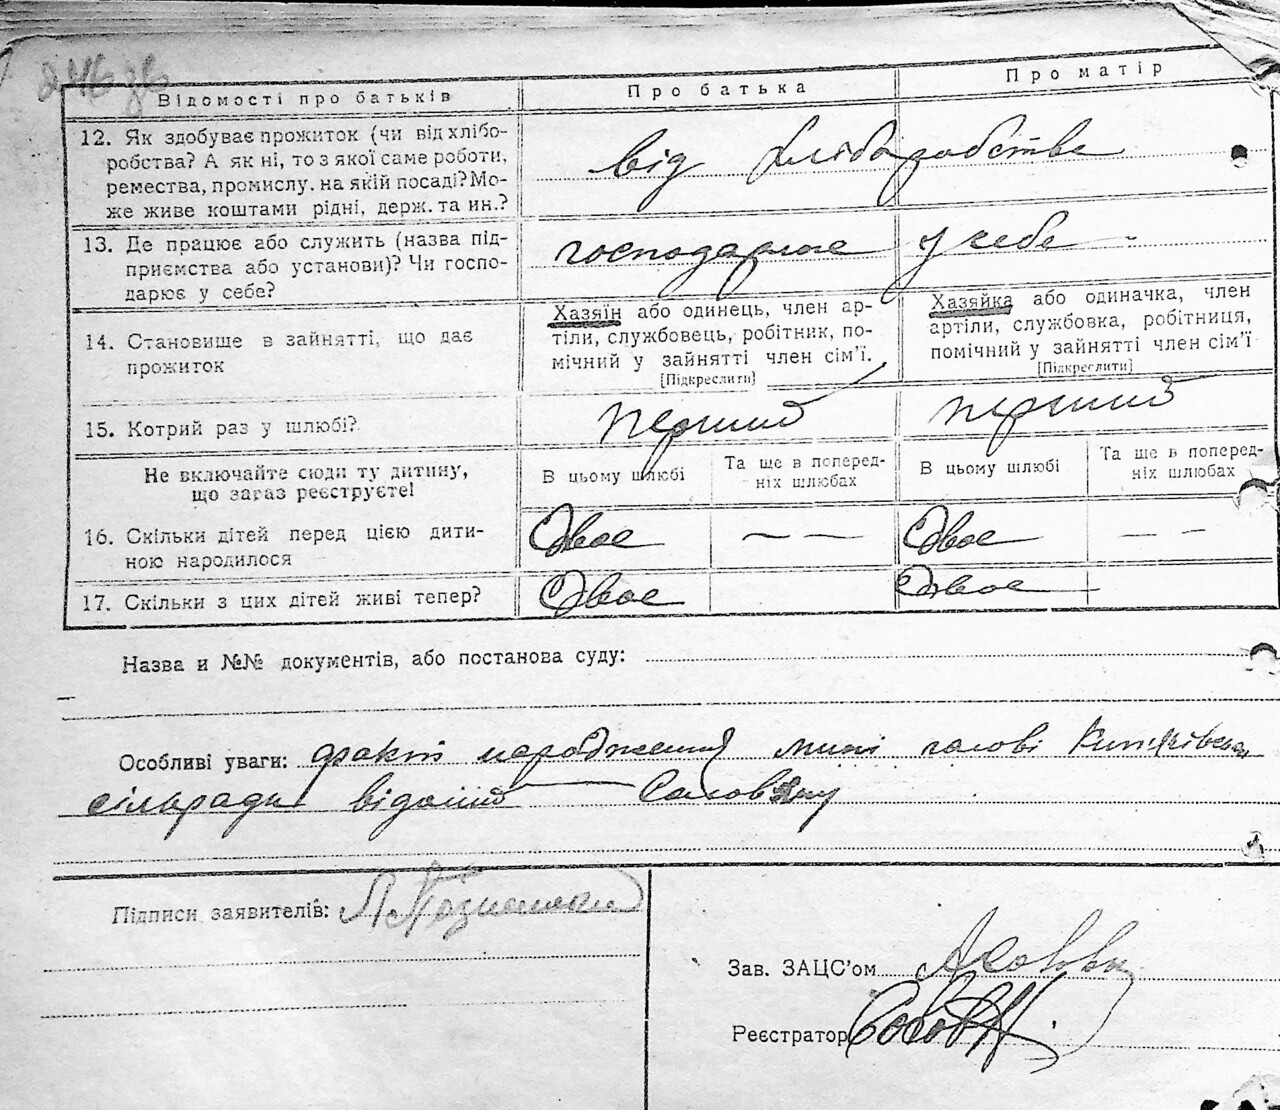 246 зв
Відомості про батьків
Про батька
Про матір
12. Як здобуває прожиток (чи від хлібо-
робства? А як ні, то з якої саме роботи,
ремества, промислу. на якій посаді? Мо-
же живе коштами рідні, держ. та ин.?
від хліборобства
13. Де працює або служить (назва під-
приємства або установи)? Чи госпо-
дарює у себе?
господарює у себе
14. Становище в зайнятті, що дає
прожиток
Хазяїн або одинець, член ар-
тіли, службовець, робітник, по-
мічний у зайнятті член сім'ї.
[Підкреслити]
Хазяйка або одиначка, член
артіли, службовка, робітниця,
помічний у зайнятті член сім'ї
[Підкреслити]
15. Котрий раз у шлюбі?
перший
перший
Не включайте сюди ту дитину,
що зараз реєструєте!
В цьому шлюбі
Та ще в поперед-
ніх шлюбах
В цьому шлюбі
Та ще в поперед-
ніх шлюбах
16. Скільки дітей перед цією дити-
ною народилося
Двоє
— —
Двоє
— —
17. Скільки з цих дітей живі тепер?
Двоє
Двоє
Назва и №№ документів, або постанова суду:
Особливі уваги: факт народження мині голові
сільради відомий
Підписи заявителів:
Зав. ЗАЦС'ом
Реєстратор